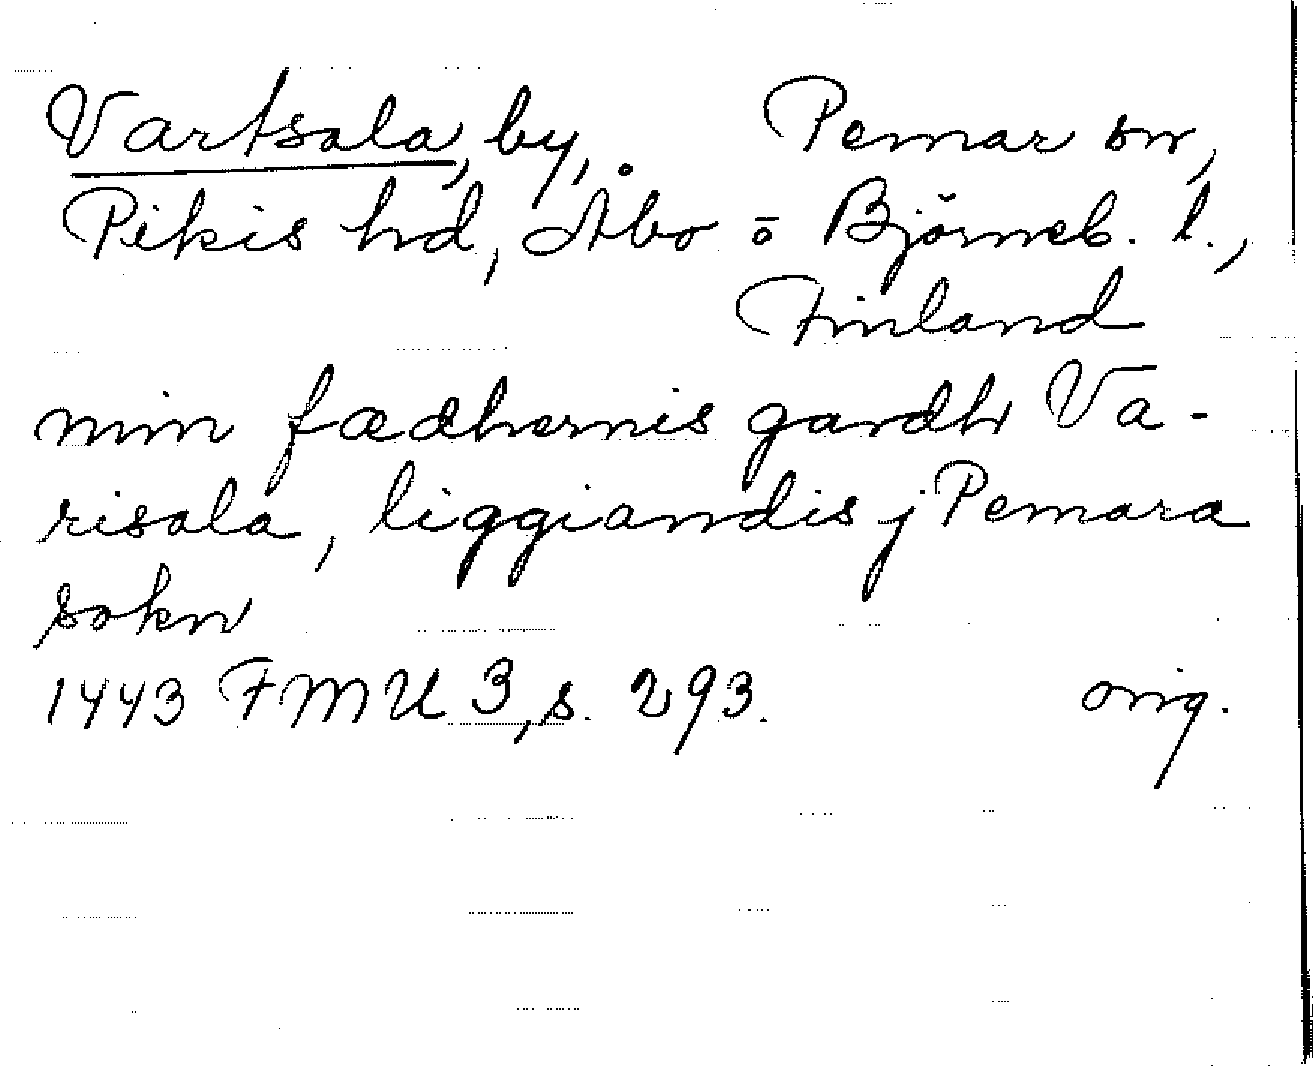 Vartsala, by, Pemar sn,
Pikis hd, Åbo o Björneb. l.,
Finland
min fædhernis gardh Va-
risala, liggiandis j Pemara
sokn
1443 FMU 3, s. 293. orig.